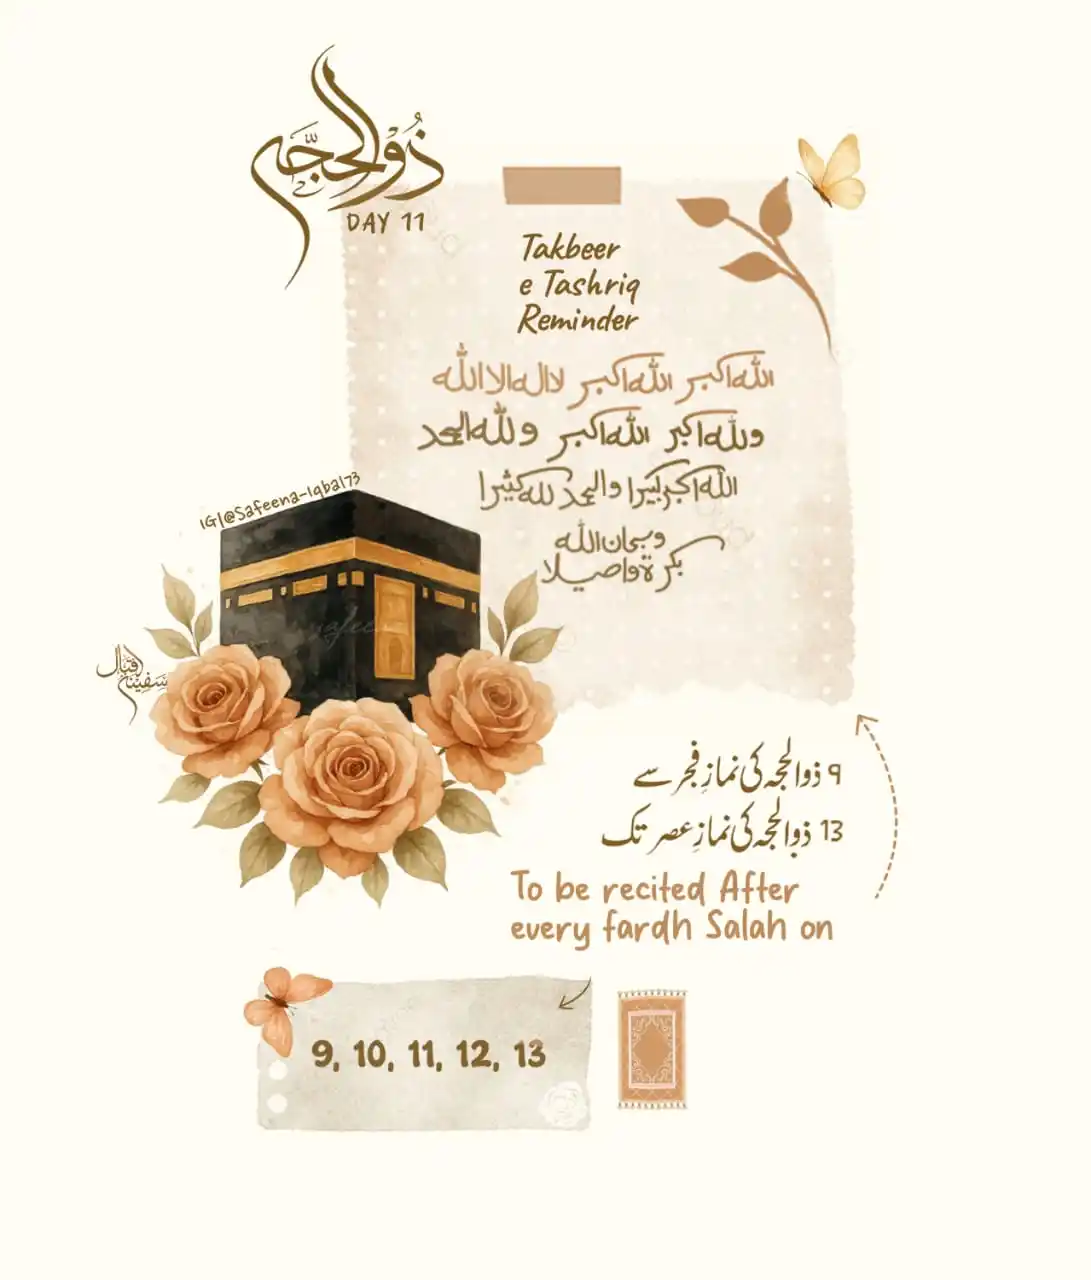 ذُوالحجّہ
DAY 11
Takbeer
e Tashriq
Reminder
اللہ اکبر اللہ اکبر لا الہ الا اللہ
وللہ اکبر اللہ اکبر وللہ الحمد
اللہ اکبر کبیرا والحمد للہ کثیرا
وسبحان اللہ
بکرۃ واصیلا
IG|@Safeena-Iqbal73
سفینہ اقبال
۹ ذوالحجہ کی نمازِ فجر سے
13 ذوالحجہ کی نمازِ عصر تک
To be recited After
every fardh Salah on
9, 10, 11, 12, 13